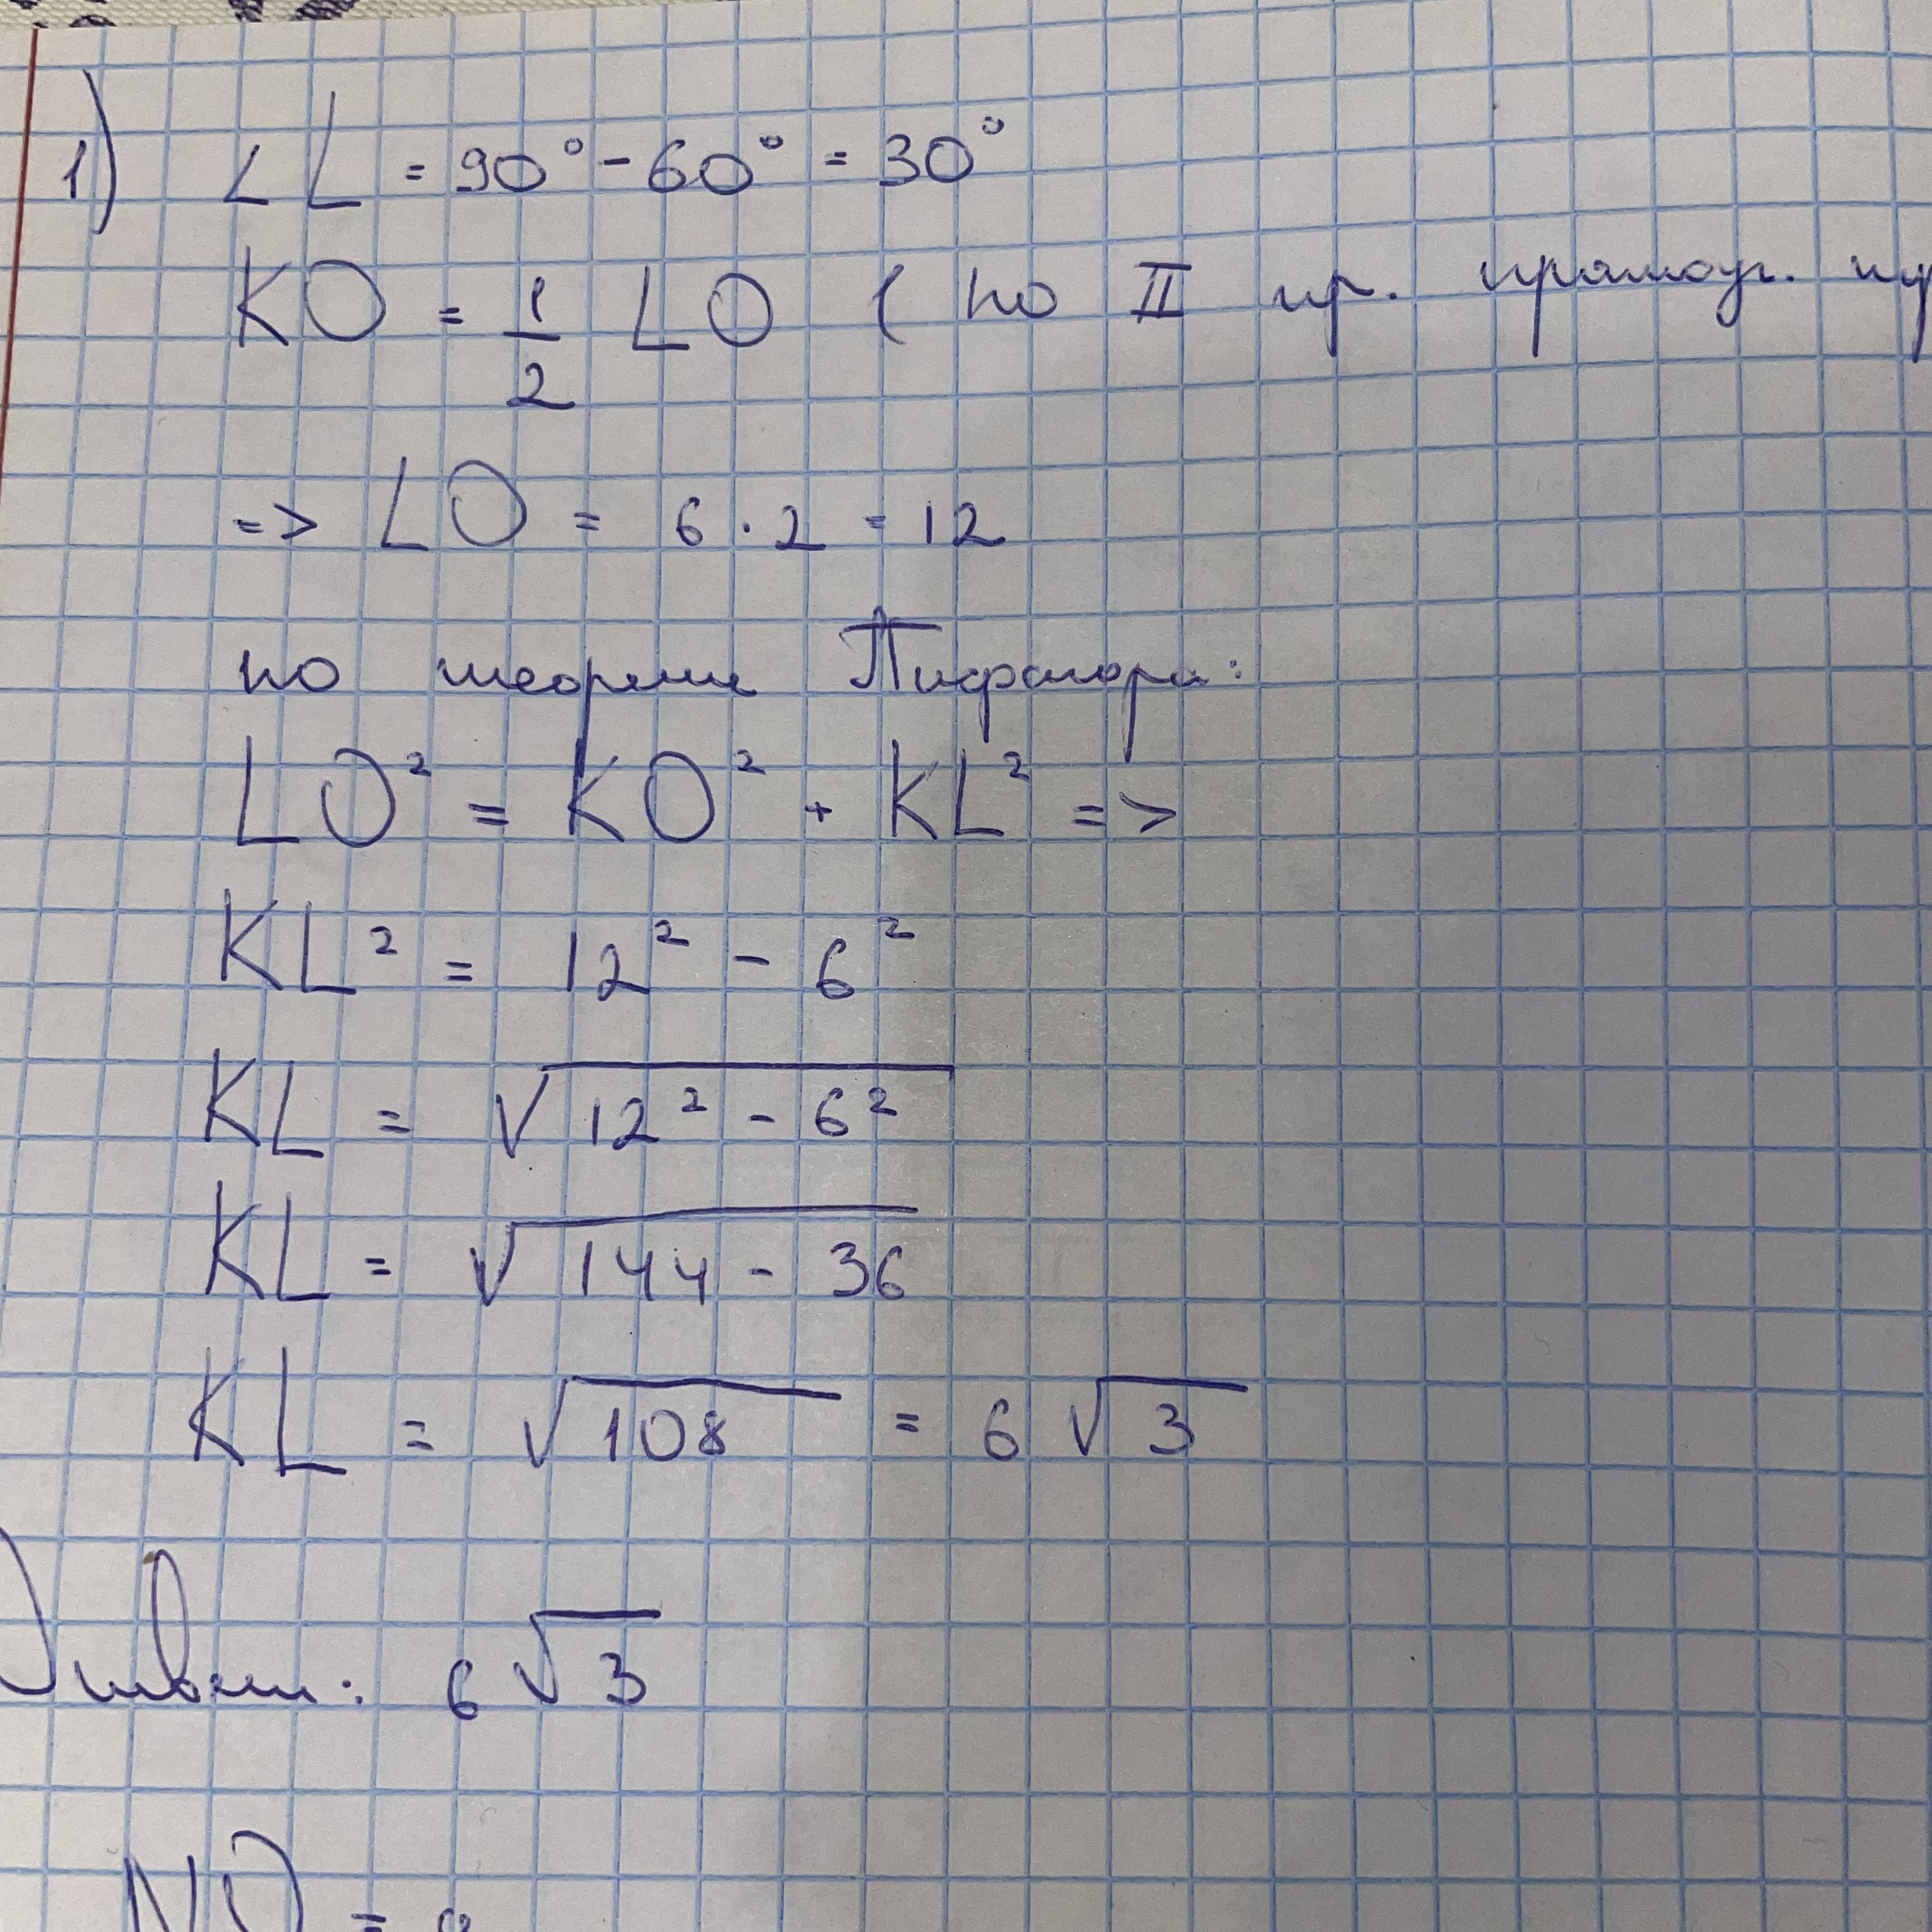 1) ∠L = 90° - 60° = 30°
KO = 1/2 LO ( по II пр. прямоуг.
=> LO = 6 · 2 = 12
по теореме Пифагора:
LO² = KO² + KL² =>
KL² = 12² - 6²
KL = √(12² - 6²)
KL = √(144 - 36)
KL = √108 = 6√3
Ответ: 6√3